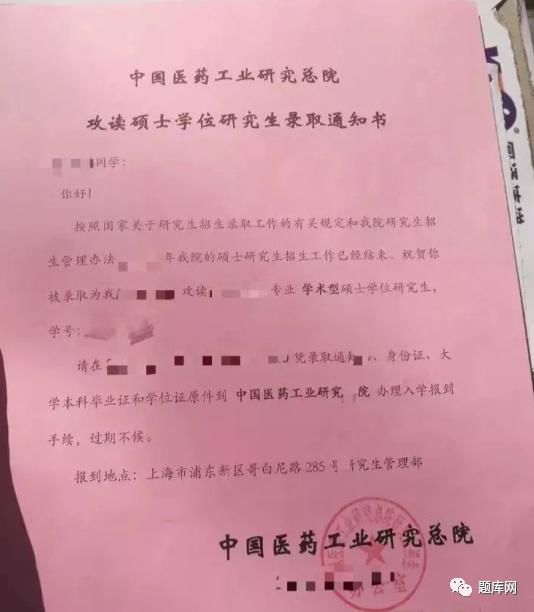 中国医药工业研究总院
攻读硕士学位研究生录取通知书
同学:
你好!
按照国家关于研究生招生录取工作的有关规定和我院研究生招
生管理办法 年我院的硕士研究生招生工作已经结束。祝贺你
被录取为我 攻读 专业 学术型硕士学位研究生,
学号:
请在 凭录取通知 、身份证、大
学本科毕业证和学位证原件到 中国医药工业研究 院 办理入学报到
手续,过期不候。
报到地点:上海市浦东新区哥白尼路 285号 研究生管理部
中国医药工业研究总院
题库网